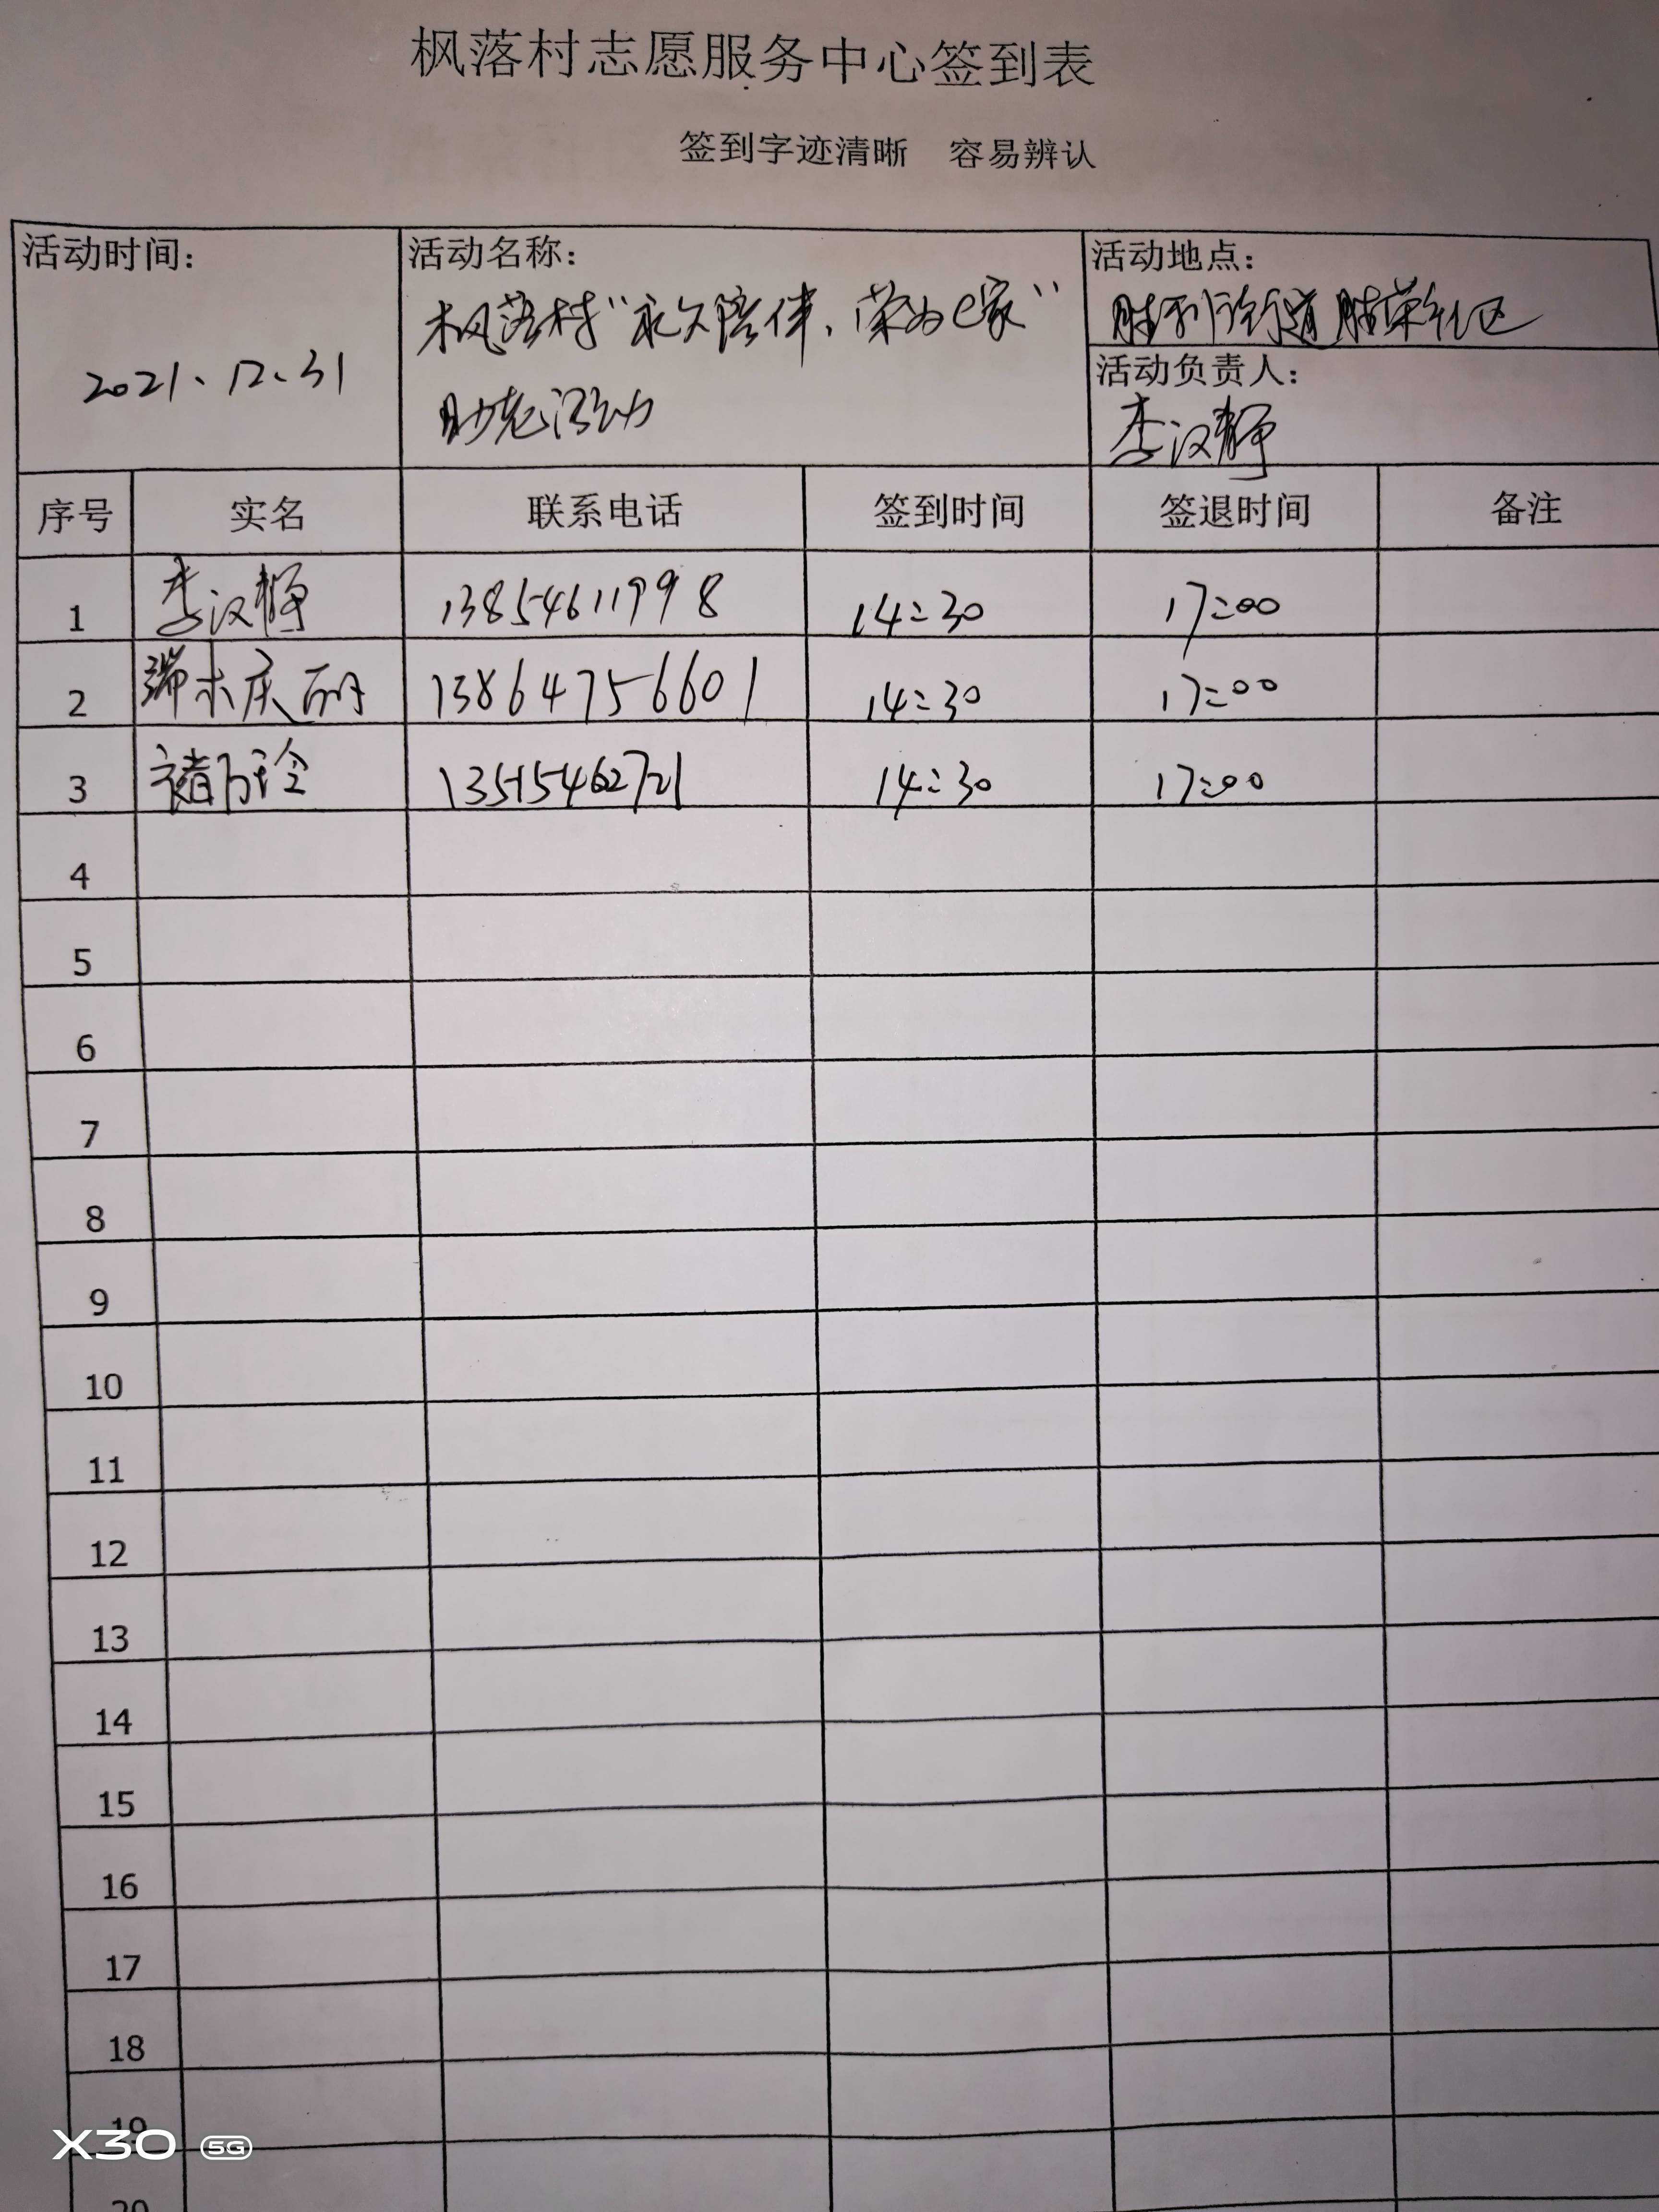 枫落村志愿服务中心签到表
签到字迹清晰 容易辨认
活动时间: 活动名称: 活动地点:
枫落村“永久陪伴、荣为e家” 胜利街道胜荣社区
2021、12、31 活动负责人:
助老活动 李汉静
序号 实名 联系电话 签到时间 签退时间 备注
1 李汉静 13854611998 14:30 17:00
2 端木庆丽 13864756601 14:30 17:00
3 褚万玲 13515462721 14:30 17:00
4
5
6
7
8
9
10
11
12
13
14
15
16
17
18
19
X30 5G
20